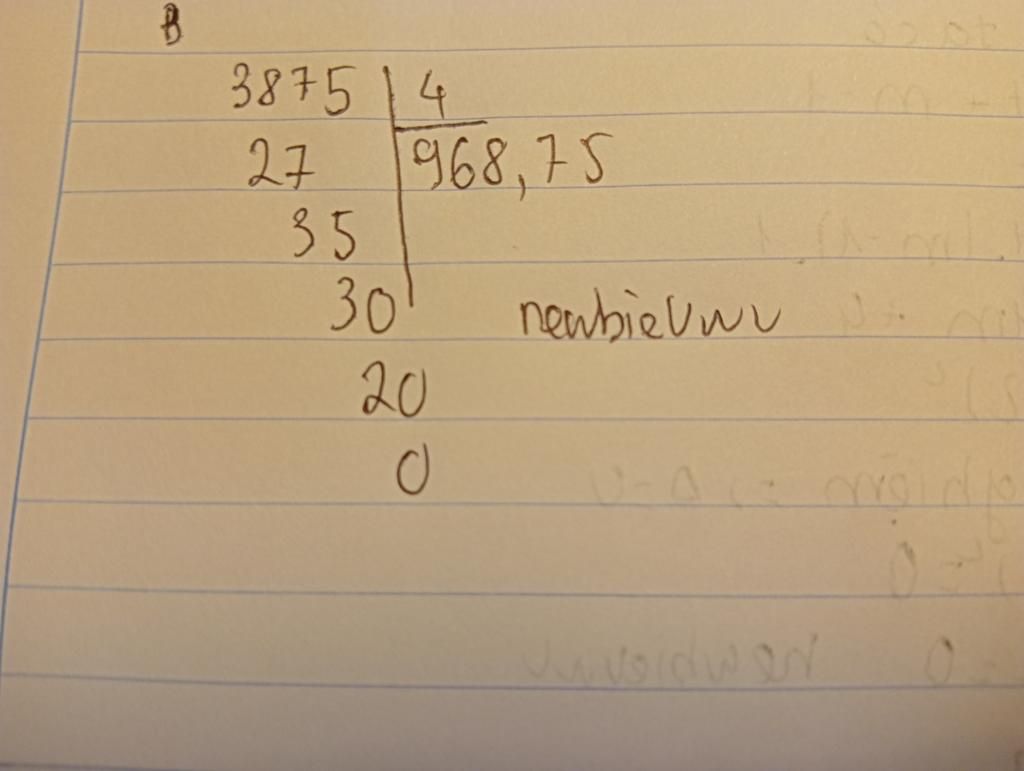 B
3875 4
27 968,75
35
30 newbieUwU
20
0